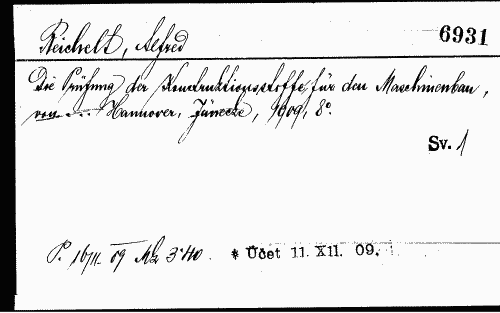 6931
Reichelt, Alfred
Die Prüfung der Konstruktionsstoffe für den Maschinenbau,
von ... Hannover, Jänecke, 1909, 8°.
Sv. 1
P. 16/11. 09 Mk 3·40 * Účet 11. XII. 09.